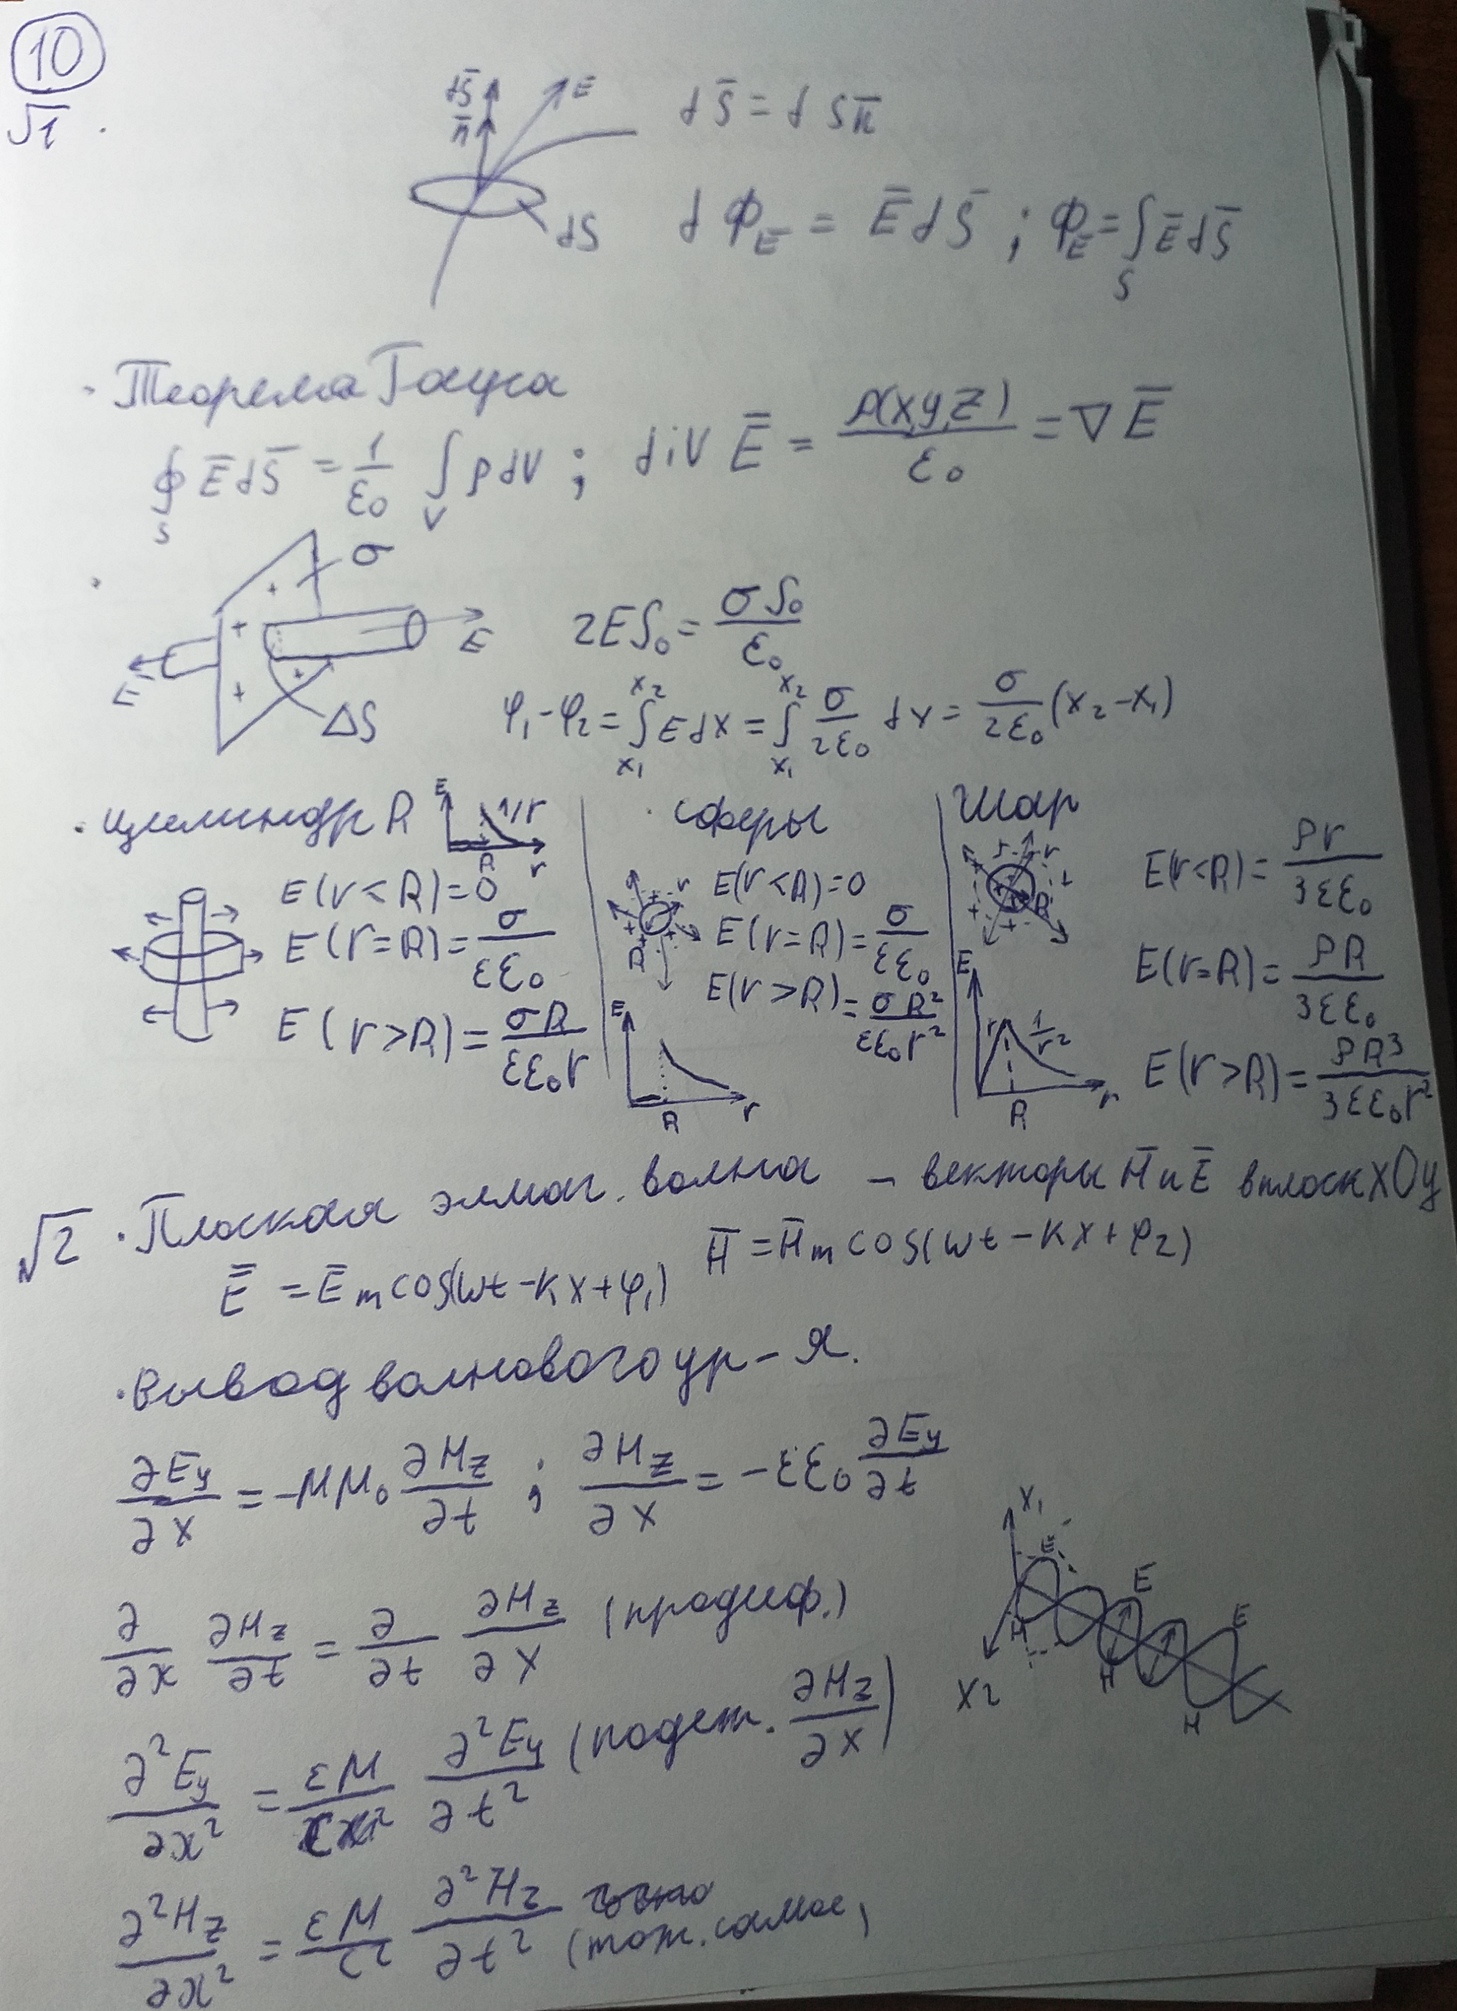 10
√1.
dS̄ n̄ E dS̄ = dS n̄
dS dΦ_E = Ē dS̄ ; Φ_E = ∫_S Ē dS̄
· Теорема Гауса
∮_S Ē dS̄ = 1/ε₀ ∫_V ρ dV ; div Ē = ρ(x,y,z)/ε₀ = ∇ Ē
σ + + + + E E ΔS
2ES₀ = σS₀/ε₀
φ₁ - φ₂ = ∫_{x₁}^{x₂} E dx = ∫_{x₁}^{x₂} σ/2ε₀ dx = σ/2ε₀ (x₂ - x₁)
· цилиндр R E 1/r R r
E(r < R) = 0
E(r = R) = σ/εε₀
E(r > R) = σR/εε₀r
· сферы
E(r < R) = 0
E(r = R) = σ/εε₀
E(r > R) = σR²/εε₀r²
R r E R r
Шар
E(r < R) = ρr/3εε₀
E(r = R) = ρR/3εε₀
E(r > R) = ρR³/3εε₀r²
r R E r 1/r² R r
√2 · Плоская элмаг. волна - векторы H̄ и Ē в плоск xOy
Ē = Ē_m cos(ωt - kx + φ₁) H̄ = H̄_m cos(ωt - kx + φ₂)
· Вывод волнового ур-я.
∂E_y/∂x = -μμ₀ ∂H_z/∂t ; ∂H_z/∂x = -εε₀ ∂E_y/∂t
∂/∂x ∂H_z/∂t = ∂/∂t ∂H_z/∂x (продиф.)
∂²E_y/∂x² = εμ/c² ∂²E_y/∂t² (подст. ∂H_z/∂x)
∂²H_z/∂x² = εμ/c² ∂²H_z/∂t² (тож. самое)
x₁ E E E H H H x₂